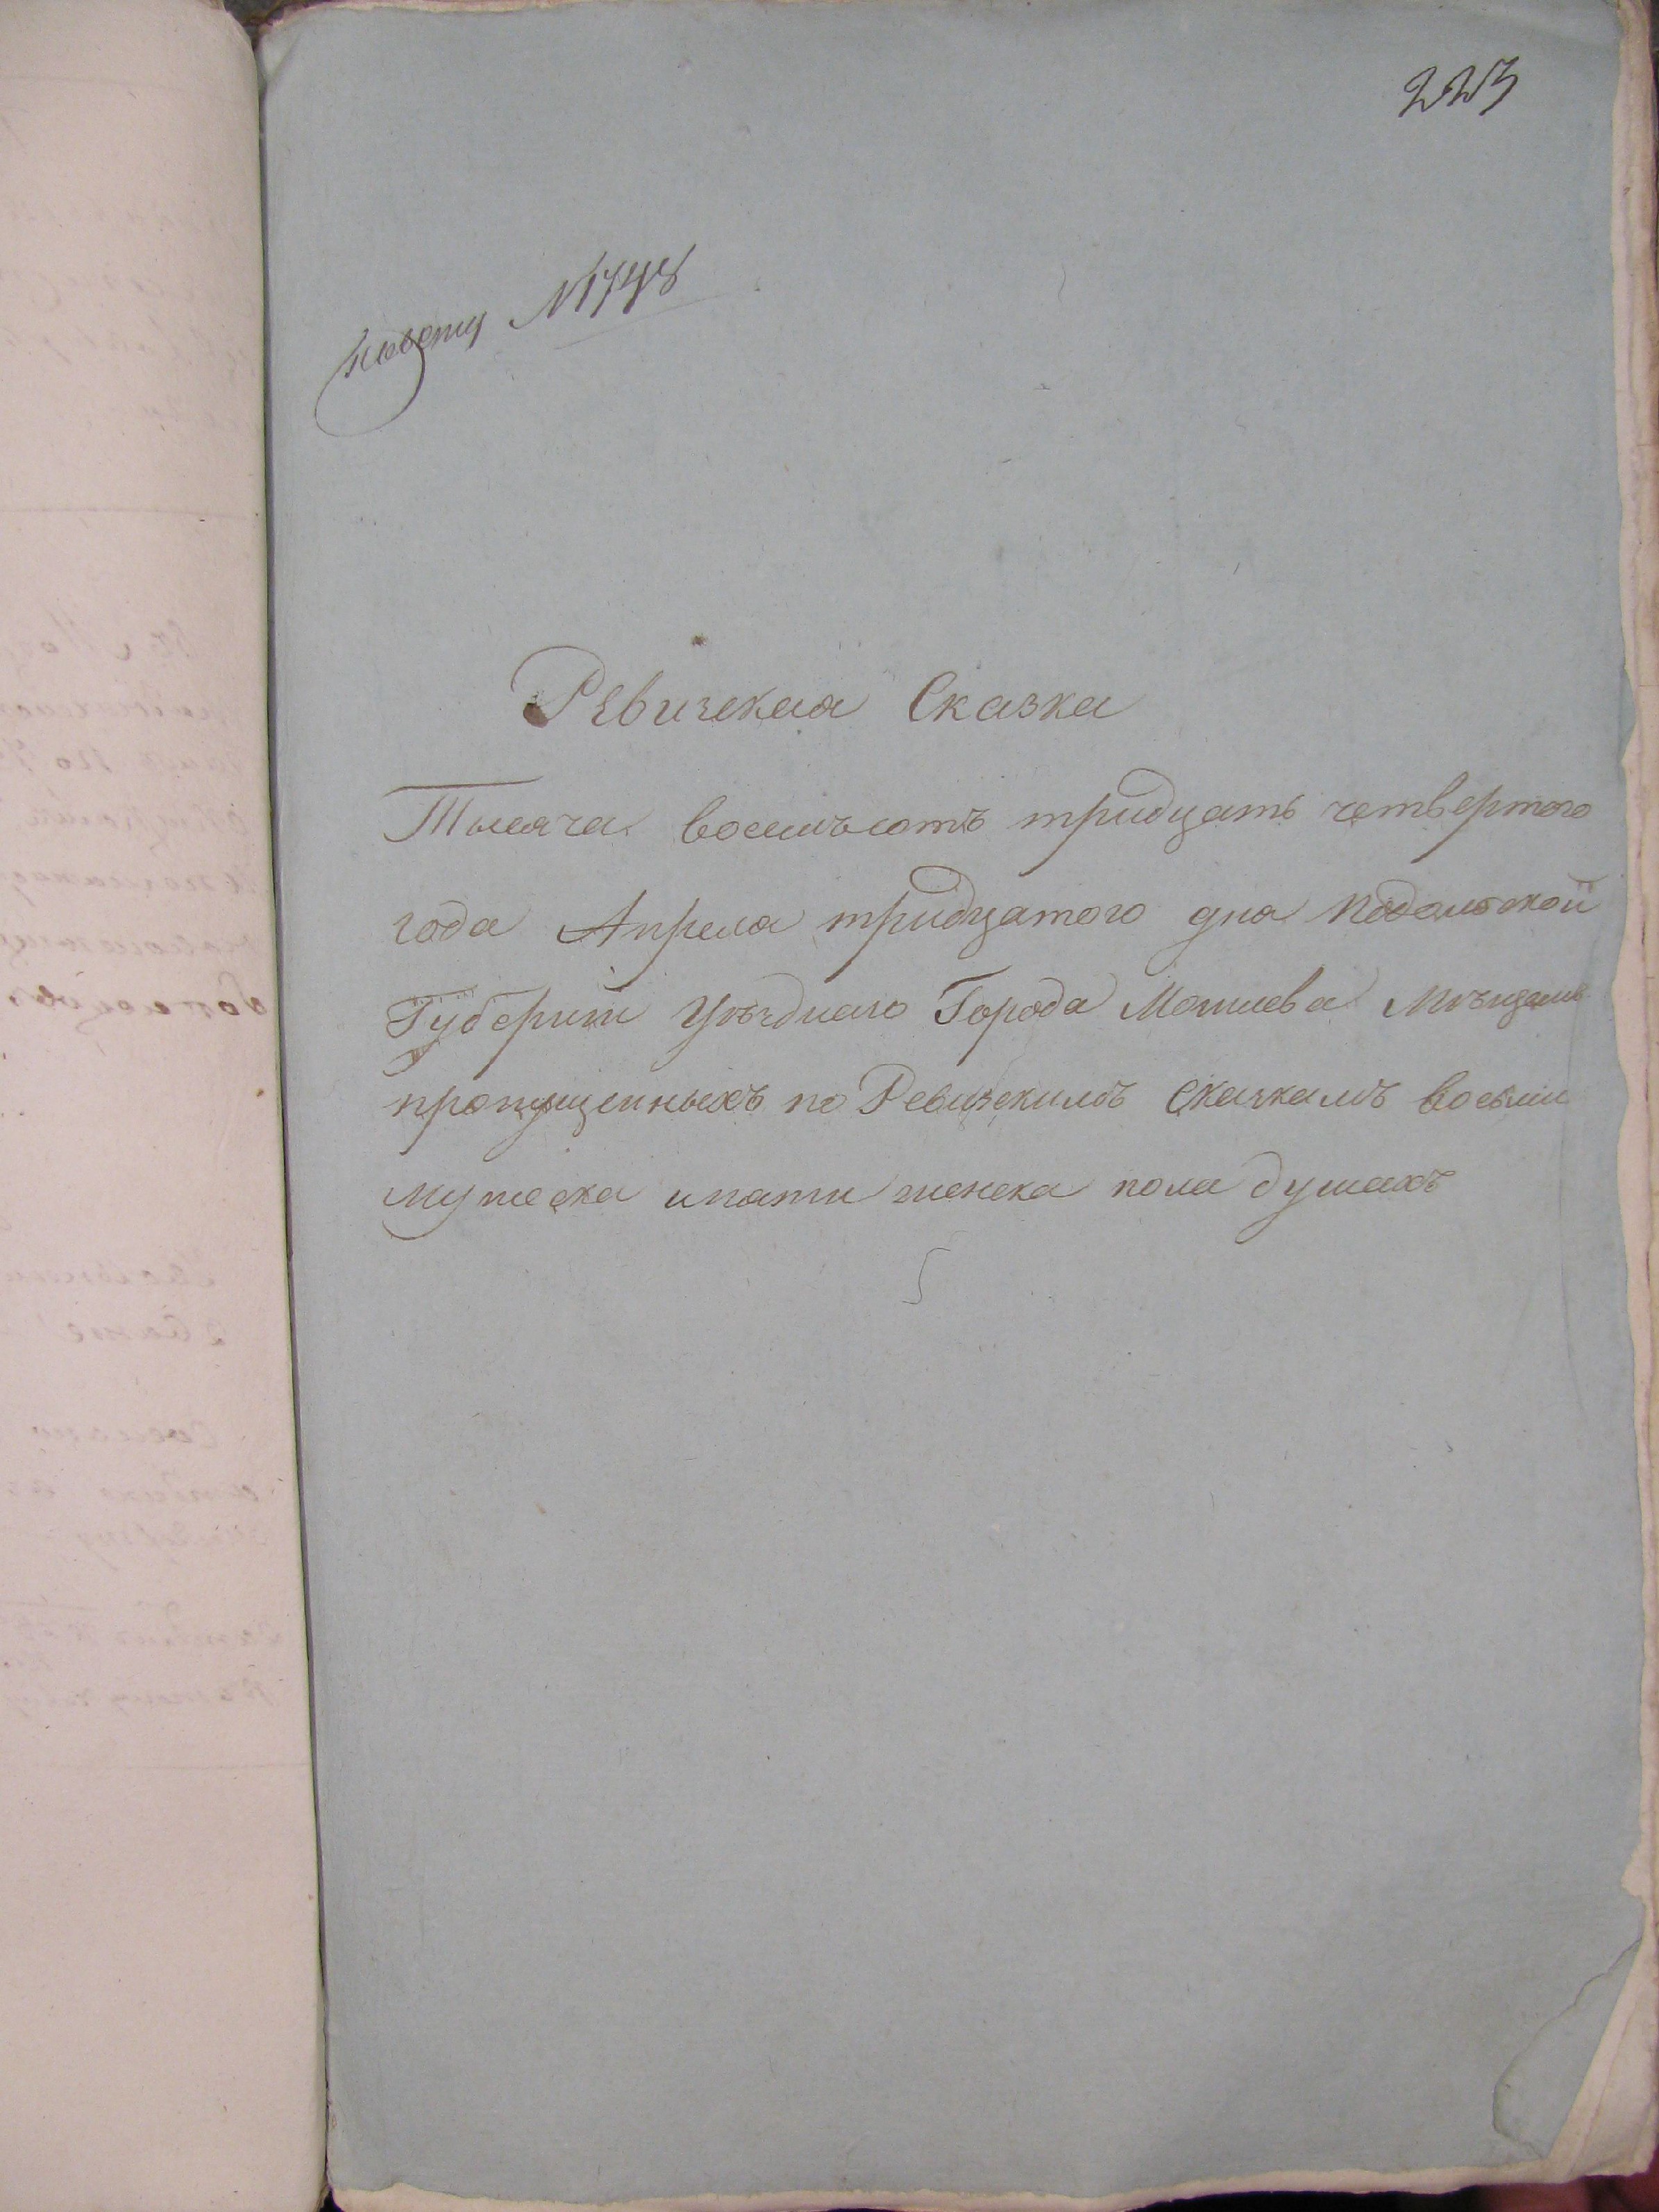 223
№ 1748
Ревизская Сказка
Тысяча восемьсотъ тридцать четвертого
года Апреля тридцатого дня Подольской
Губернии Уѣзднаго Города Могилева Мѣщанъ
пропущенныхъ по Ревизскимъ Сказкамъ восьми
мужеска и пяти женска пола душахъ